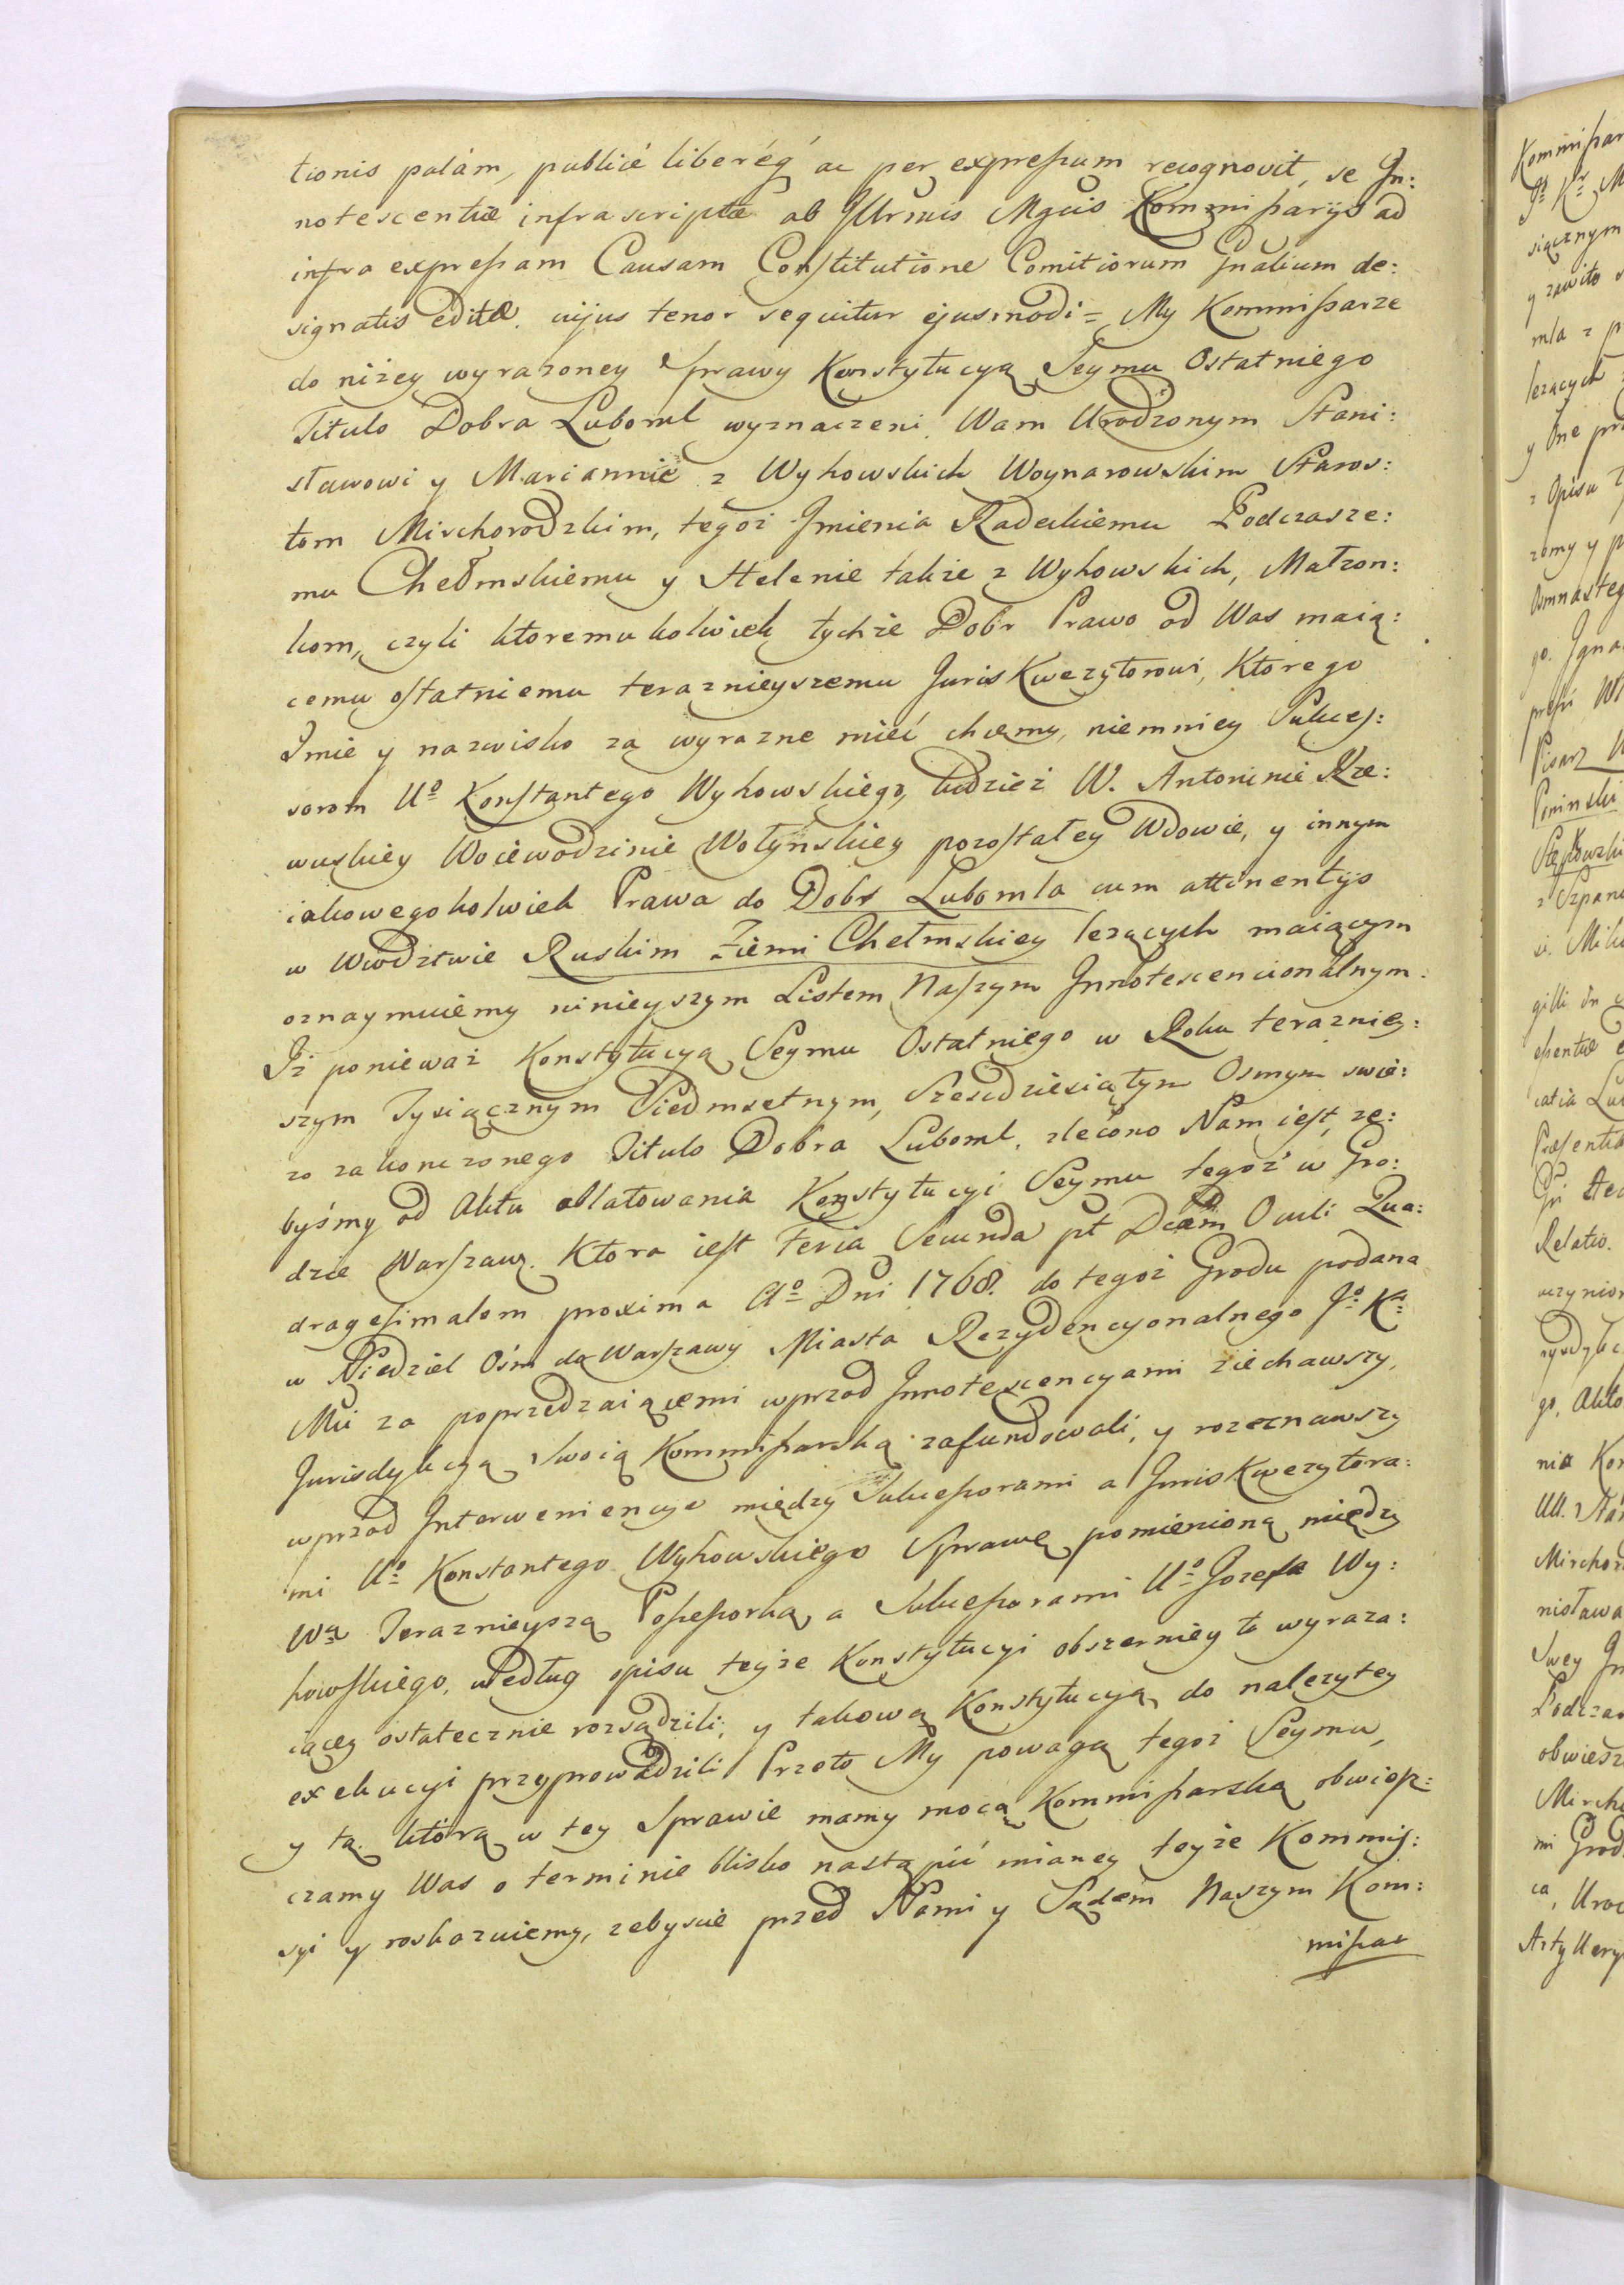 tionis palám, publicé liberéǵ ac per expressum recognovit, se In:
notescentiæ infrascriptæ ab Illrmis Mgcis Kommissarijs ad
infra expressam Causam Constitutione Comitiorum Gnalium de:
signatis editæ. cujus tenor sequitur ejusmodi = My Kommissarze
do niżey wyrażoney Sprawy Konstytucyą Seymu Ostatniego
Titulo Dobra Luboml wyznaczeni. Wam Urodzonym Stani:
sławowi y Mariannie z Wyhowskich Woynarowskim Staros:
tom Mirchorodzkim, tegoż Jmienia Radeckiemu Podczasze:
mu Chełmskiemu y Helenie także z Wyhowskich, Małżon:
kom, czyli ktoremukolwiek tychże Dobr Prawo od Was maią:
cemu ostatniemu teraznieyszemu Juris Kwezytorowi, Ktorego
Jmie y nazwisko za wyrazne mieć chcemy, niemniey Sukces:
sorom Uº Konstantego Wyhowskiego, tudzież W. Antoninie Rze:
wuskiey Woiewodzinie Wołyńskiey pozostałey Wdowie, y innym
iakowegokolwiek Prawa do Dobr Lubomla cum attinentijs
w Wwodztwie Ruskim Ziemi Chełmskiey leżących maiącym
oznaymuiemy ninieyszym Listem Naszym Jnnotescencionalnym.
Jż ponieważ Konstytucyą Seymu Ostatniego w Roku teraźniey:
szym Tysiącznym Siedmsetnym, Szescdziesiątym Osmym swie:
zo zakonczonego Titulo Dobra Luboml. zlecono Nam iest, że:
byśmy od Aktu oblatowania Konstytucyi Seymu tegoż w Gro:
dzie Warszaw. Ktora iest Feria Secunda pt Dcam Oculi Qua:
dragesimalom proxima Aº Dni 1768. do tegoż Grodu podana
w Niedziel Ośm do Warszawy Miasta Rezydencyonalnego Jº Kr
Mci za poprzedzaiącemi wprzod Jnnotescencyami ziechawszy,
Jurisdykcyą Swoią Kommissarską zafundowali, y rozeznawszy
wprzod Jnterweniencye między Sukcessorami a Juris Kwezytora:
mi Uº Konstantego Wyhowskiego Sprawę pomienioną między
Wą Teraznieyszą Possessorką, a Sukcessorami Uº Jozefa Wy:
howskiego, według opisu teyże Konstytucyi obszerniey to wyraża:
iącey ostatecznie rozsądzili, y takową Konstytucyą, do nalezytey
exekucyi przyprowadzili Przeto My powagą tegoż Seymu,
y tą. ktorą w tey Sprawie mamy mocą Kommissarską obwiesz:
czamy Was o terminie blisko nastąpić mianey teyże Kommis:
syi y roskazuiemy, zebyscie przed Nami y Sądem Naszym Kom:
missar
Kommissar
siącznym
y zawito
mla z p
leżących
y One prz
z Opisu
zemy y p
Osmnasteg
go. Jgna
Pisarz
Poninski
Relatio.
go, Akto
nia Kon
Mirchor
nisława
Swey Jn
Podczas
obwiesz
Mircho
mi Grod
ca, Uro
Artyllery